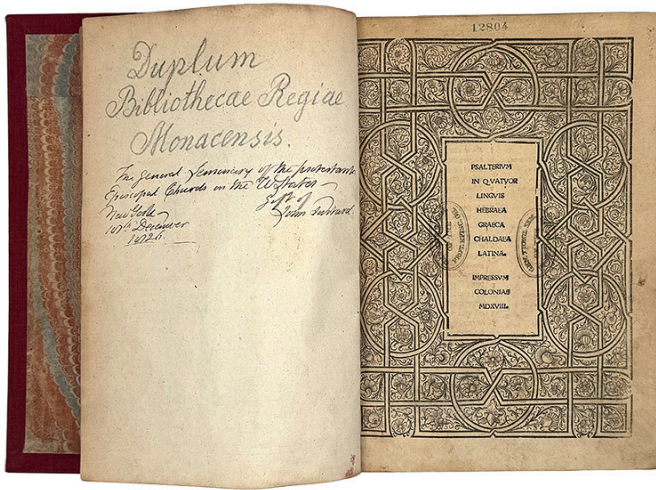 Duplum
Bibliothecae Regiae
Monacensis.
The general Seminary of the protestant
Episcopal Church in the U States
New York
Gift of
10th December
12804
PSALTERIVM
IN QVATVOR
LINGVIS
HEBRAEA
GRAECA
CHALDAEA
LATINA.
IMPRESSVM
COLONIAE
MDXVIII.